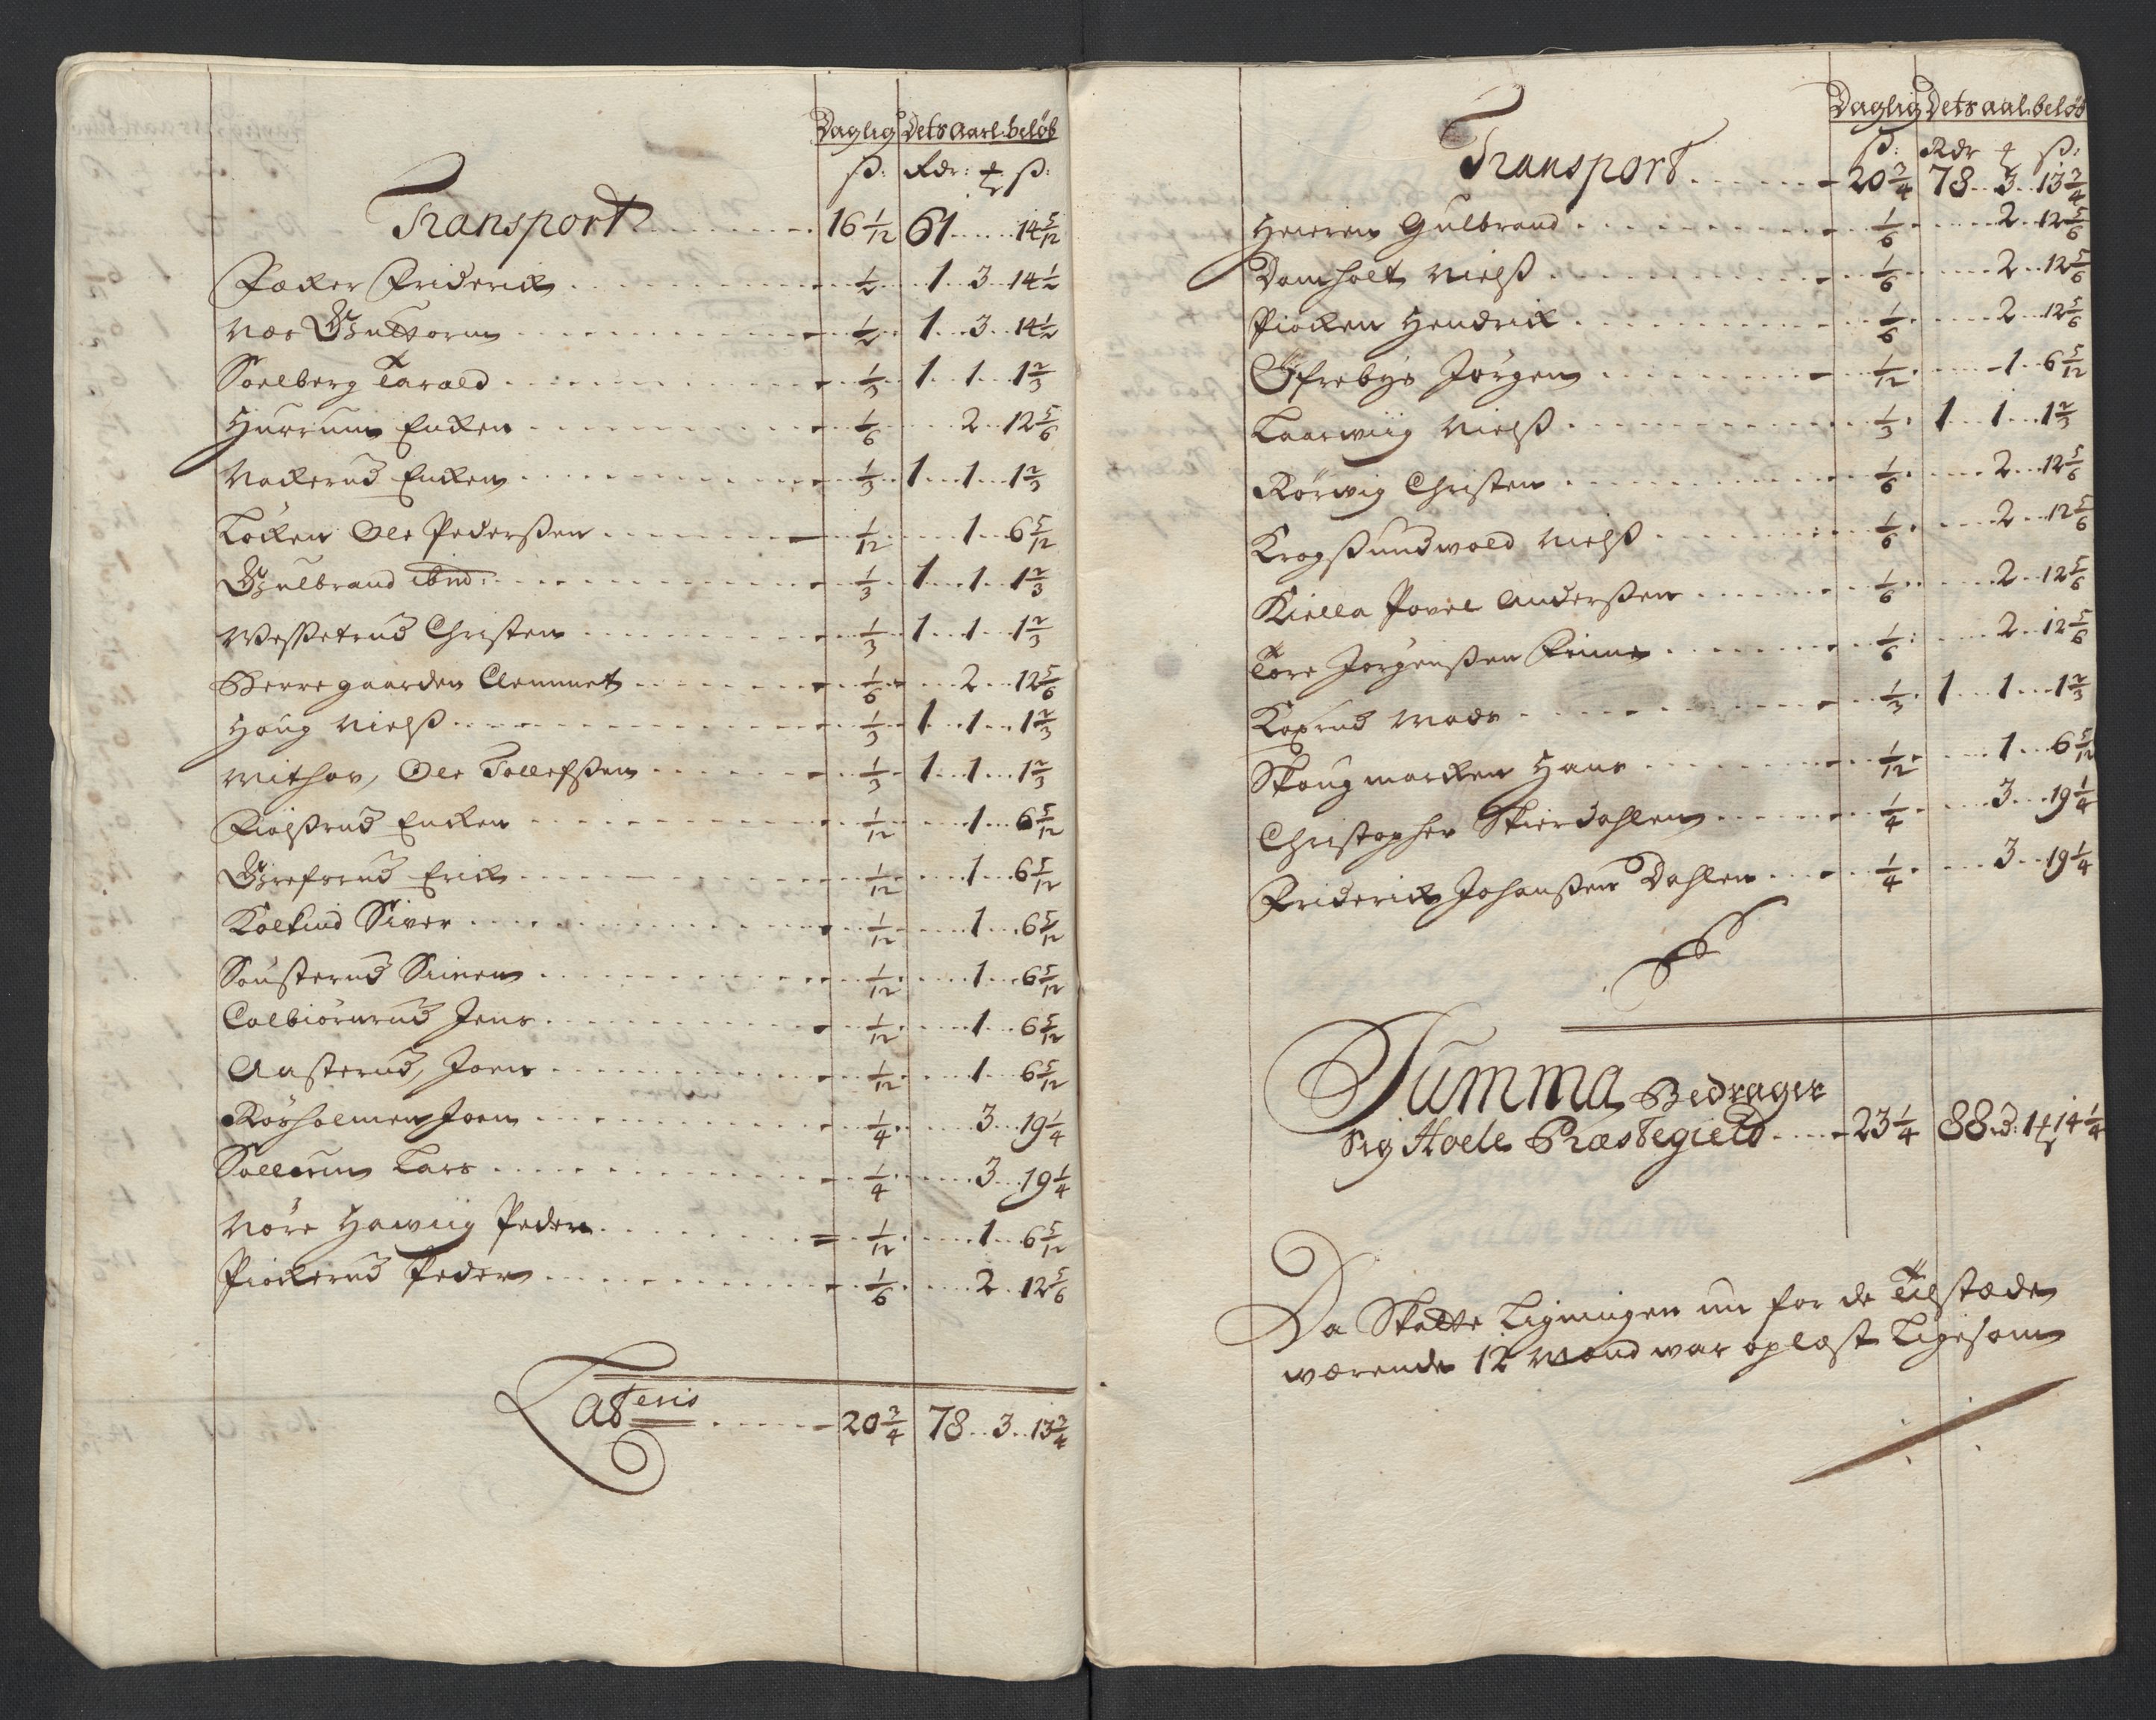 Daglig Dets Aarl. beløb
ß: Rdr: ß:
Transport 16 1/12 61 14 5/12
Fæker Friderich 1/2 1 3 14 1/2
Næs Guttorm 1/2 1 3 14 1/2
Soelberg Tarald 1/3 1 1 1 2/3
Hurrum Encken 1/6 2 12 5/6
Nackerud Encken 1/3 1 1 1 2/3
Løken Ole Pederßen 1/12 1 6 5/12
Gulbrand ibid: 1/3 1 1 1 2/3
Weßetrud Christen 1/3 1 1 1 2/3
Herregaarden Clemmet 1/6 2 12 5/6
Houg Nielß 1/3 1 1 1 2/3
Mithov, Ole Tollefßen 1/3 1 1 1 2/3
Fiølßrud Encken 1/12 1 6 5/12
Grefsrud Erich 1/12 1 6 5/12
Siver 1/12 1 6 5/12
Sousterud Simen 1/12 1 6 5/12
Colbiørnrud Jens 1/12 1 6 5/12
Aasterud, Joen 1/12 1 6 5/12
Rørholmen Joen 1/4 3 19 1/4
Sollerum Lars 1/4 3 19 1/4
Nøre Hawiig Peder 1/12 1 6 5/12
Piockerud Peder 1/6 2 12 5/6
Lateris 20 3/4 78 3 13 3/4
Daglig Dets aal. beløb
ß: Rdr ß:
Transport 20 3/4 78 3 13 3/4
Heieren Gulbrand 1/6 2 12 5/6
Domholt Nielß 1/6 2 12 5/6
Piocken Hendrich 1/6 2 12 5/6
Øfrebye Jørgen 1/12 1 6 5/12
Laarwiig Nielß 1/3 1 1 1 2/3
Rørvig Christen 1/6 2 12 5/6
Krogßundwald Nielß 1/6 2 12 5/6
Kiella Povel Anderßen 1/6 2 12 5/6
Tore Jørgenßen Finne 1/6 2 12 5/6
Koxrud Mads 1/3 1 1 1 2/3
Skougmarcken Hans 1/12 1 6 5/12
Christopher Skierdahlen 1/4 3 19 1/4
Friderich Johanßen Dahlen 1/4 3 19 1/4
Summa Bedrager
Sig Hoele Præstegield 23 1/4 88 d: 1 14 1/4
Da Skatte Ligningen nu for de Tilstæde
wærende 12 Mænd war oplæst Ligesom